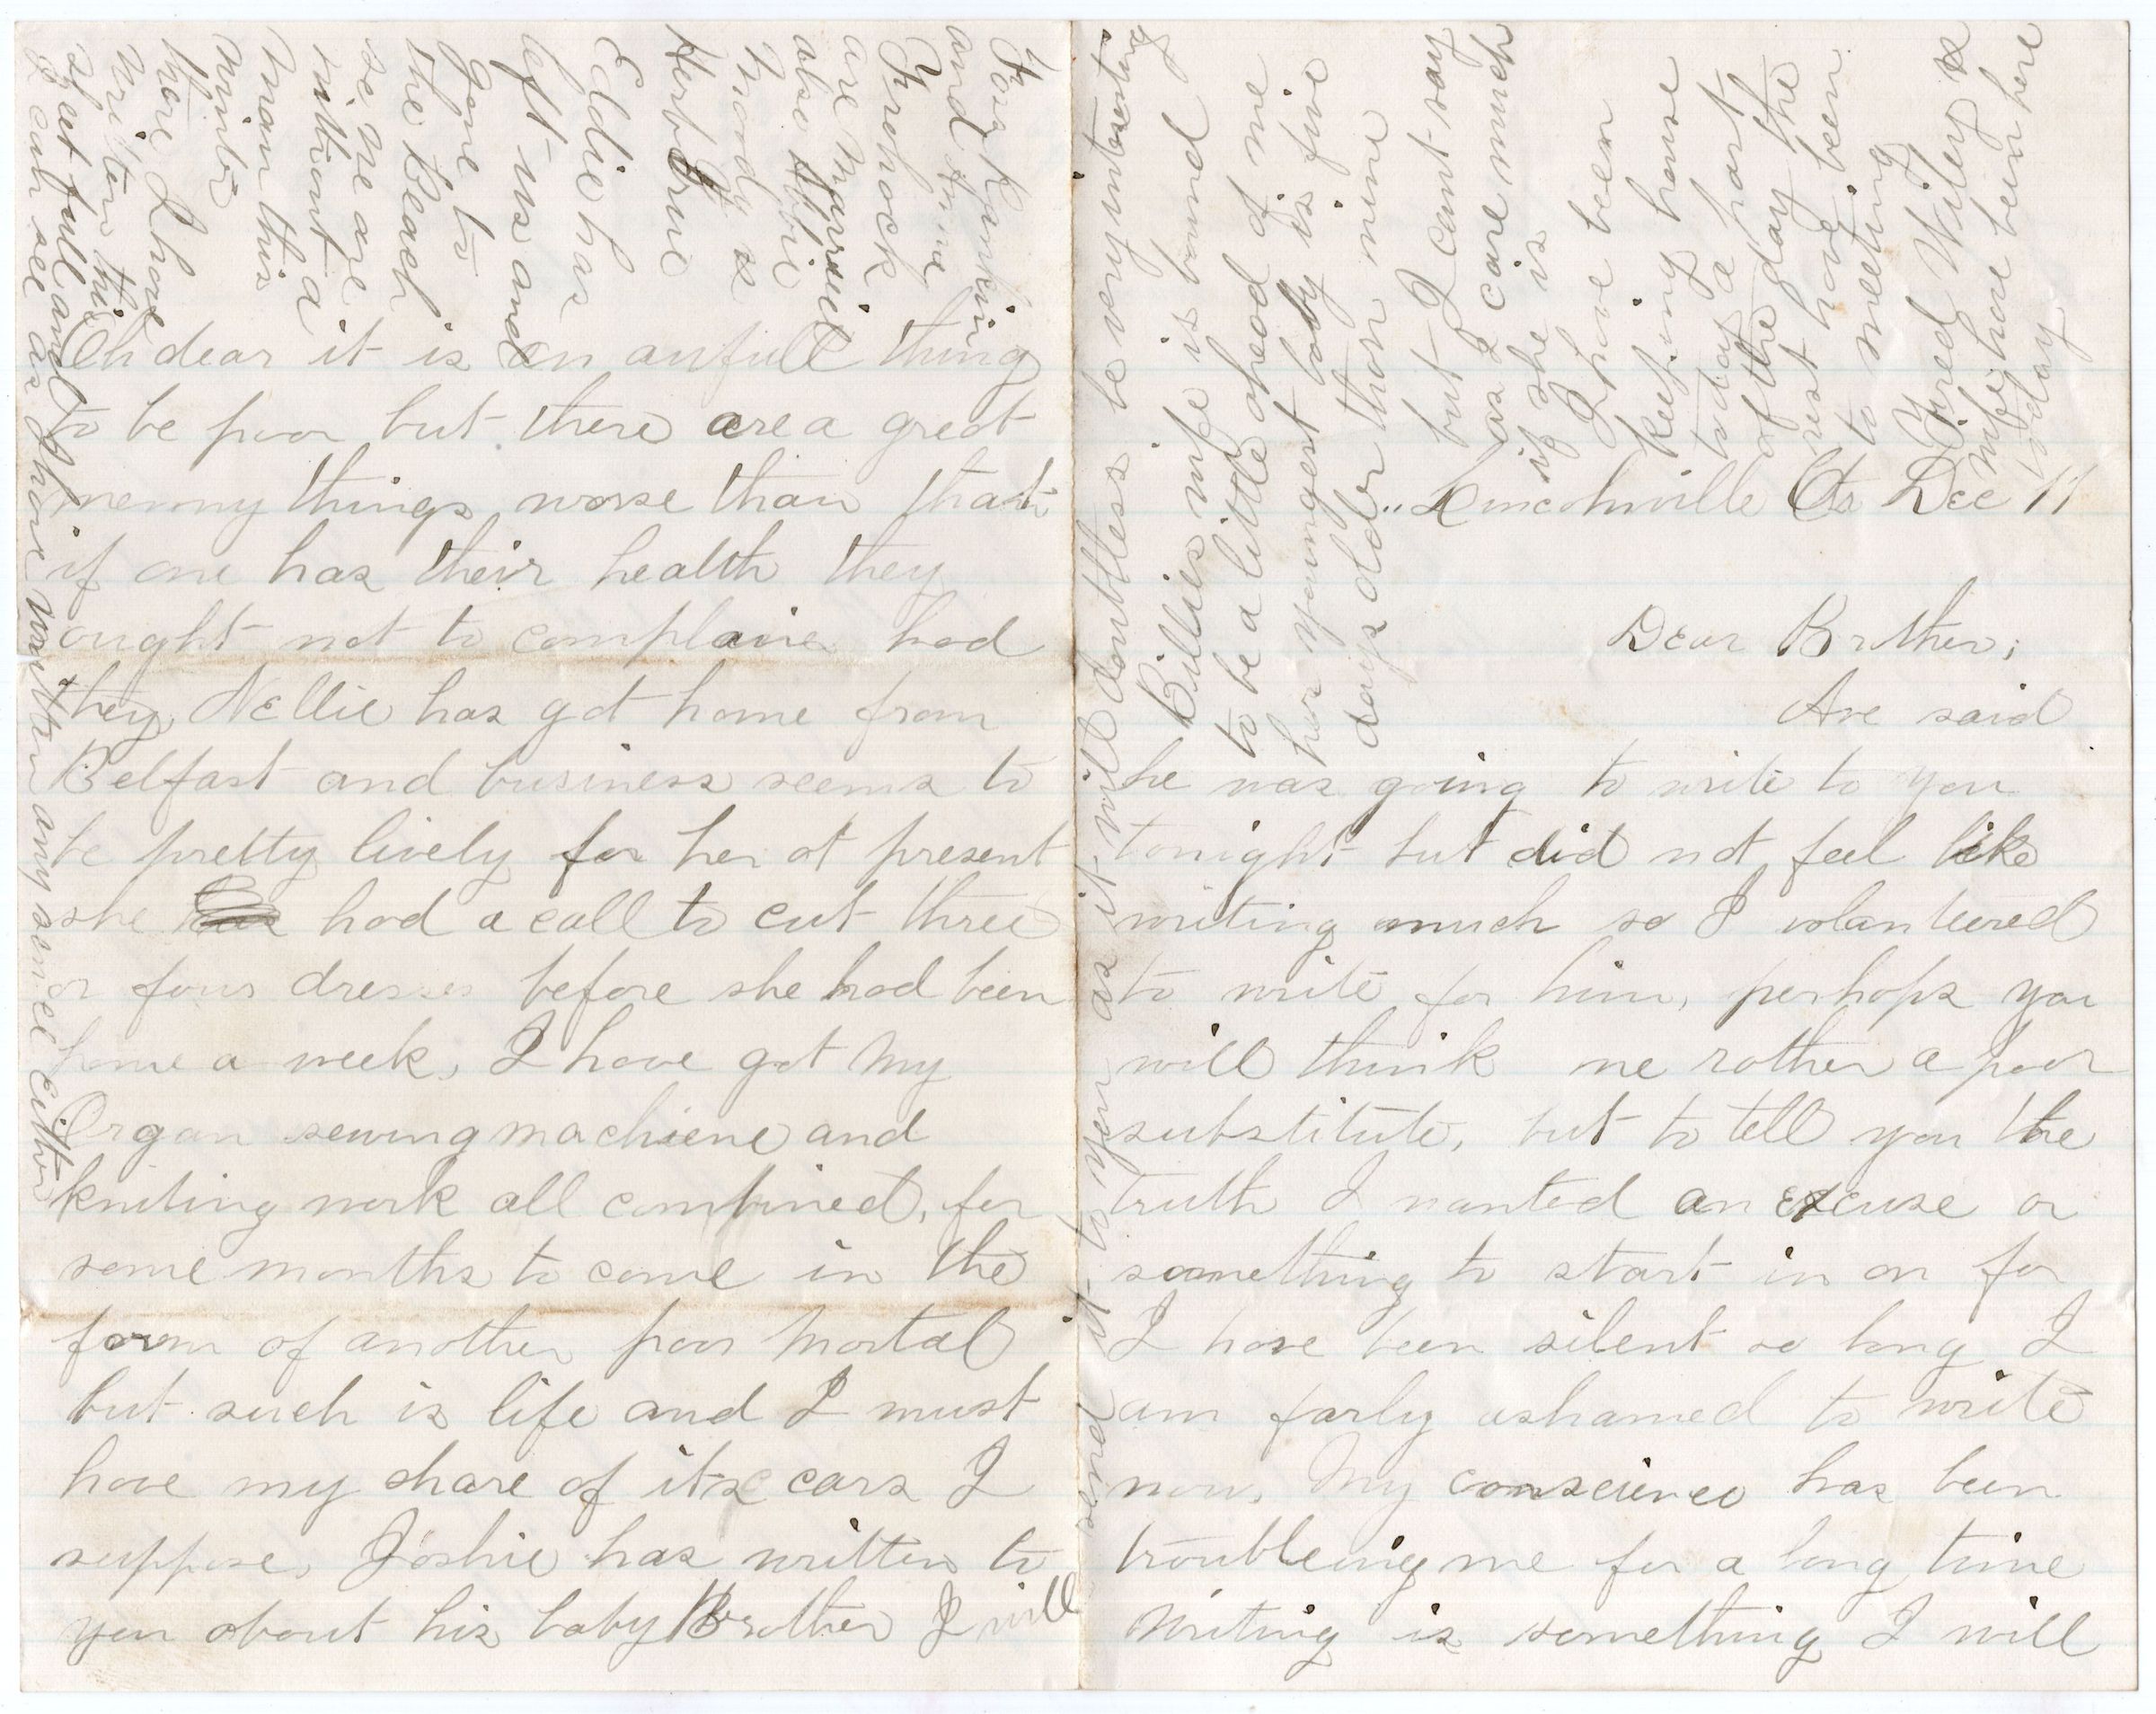 Lincolnville Ctr Dec 11
Dear Brother;
Ave said
he was going to write to you
tonight but did not feel like
writing much so I volanteered
to write for him, perhaps you
will think me rather a poor
substitute, but to tell you the
truth I wanted an excuse or
something to start in on for
I have been silent so long I
am farly ashamed to write
now, My conscience has been
troubleing me for a long time
Writing is something I will
Oh dear it is an awfull thing
to be poor but there are a great
menny things worse than that
if one has their health they
ought not to complaine had
they, Nellie has got home from
Belfast and business seems to
be pretty lively for her at present
she had a call to cut three
or four dresses before she had been
home a week, I have got my
Organ sewing machiene and
kniting work all combined, for
some months to come in the
form of another poor Mortal
but such is life and I must
have my share of its cars I
suppose, Joshie has written to
you about his baby Brother I will
send it to you as it will doubtless be very intresting
Billies wife is bound
to be a little ahead of me
her youngest baby is five
days older than mine
but I cant say
as I care much
if she is
I have been
keeping house
today a part
of the day the
rest have been
to meeting
Fred Wiley &
wife have been here
today
Rankin
and
are Married
also Abbie
Moody &
Herb
Eddie has
left us and
gone to
the Beach
so we are
without a
man this
winter
there I have
written this
sheet full and
I can see as I have written any sence Either